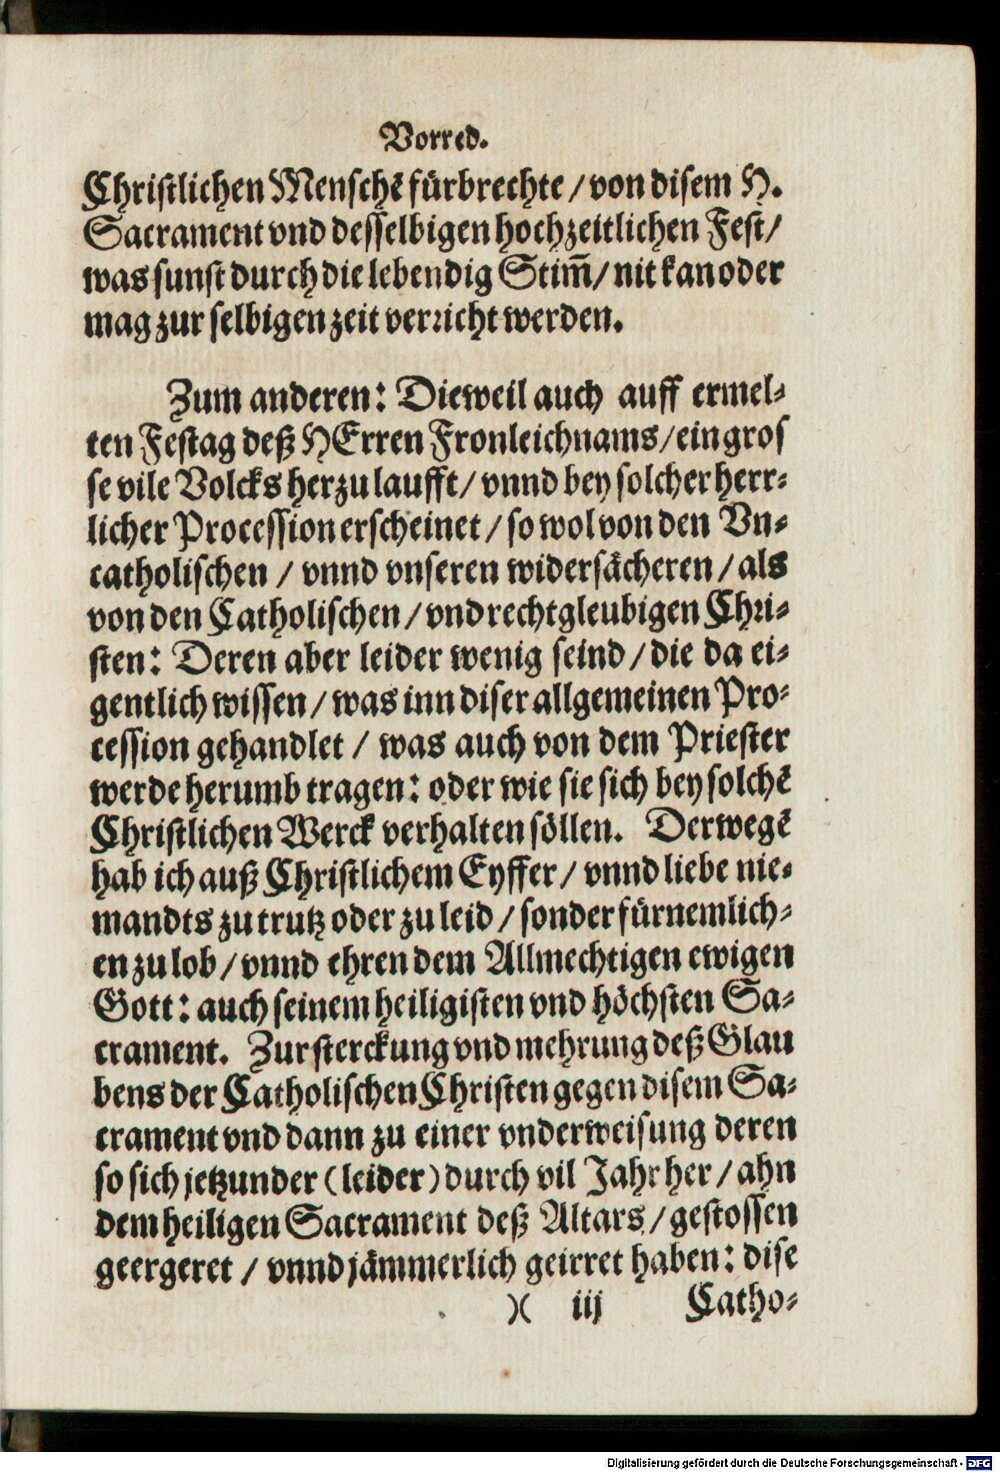 Vorred.
Christlichen Menschẽ fürbrechte / von disem H.
Sacrament vnd desselbigen hochzeitlichen Fest /
was sunst durch die lebendig Stim̃ / nit kan oder
mag zur selbigen zeit verricht werden.
Zum anderen: Dieweil auch auff ermel-
ten Festag deß HErren Fronleichnams / ein gros
se vile Volcks herzu laufft / vnnd bey solcher herr-
licher Procession erscheinet / so wol von den Vn-
catholischen / vnnd vnseren widersächeren / als
von den Catholischen / vnd rechtgleubigen Chri-
sten: Deren aber leider wenig seind / die da ei-
gentlich wissen / was inn diser allgemeinen Pro-
cession gehandlet / was auch von dem Priester
werde herumb tragen: oder wie sie sich bey solchẽ
Christlichen Werck verhalten söllen. Derwegẽ
hab ich auß Christlichem Eyffer / vnnd liebe nie-
mandts zu trutz oder zu leid / sonder fürnemlich-
en zu lob / vnnd ehren dem Allmechtigen ewigen
Gott: auch seinem heiligisten vnd höchsten Sa-
crament. Zur sterckung vnd mehrung deß Glau
bens der Catholischen Christen gegen disem Sa-
crament vnd dann zu einer vnderweisung deren
so sich jetzunder (leider) durch vil Jahr her / ahn
dem heiligen Sacrament deß Altars / gestossen
geergeret / vnnd jämmerlich geirret haben: dise
)( iij Catho-
Digitalisierung gefördert durch die Deutsche Forschungsgemeinschaft - DFG